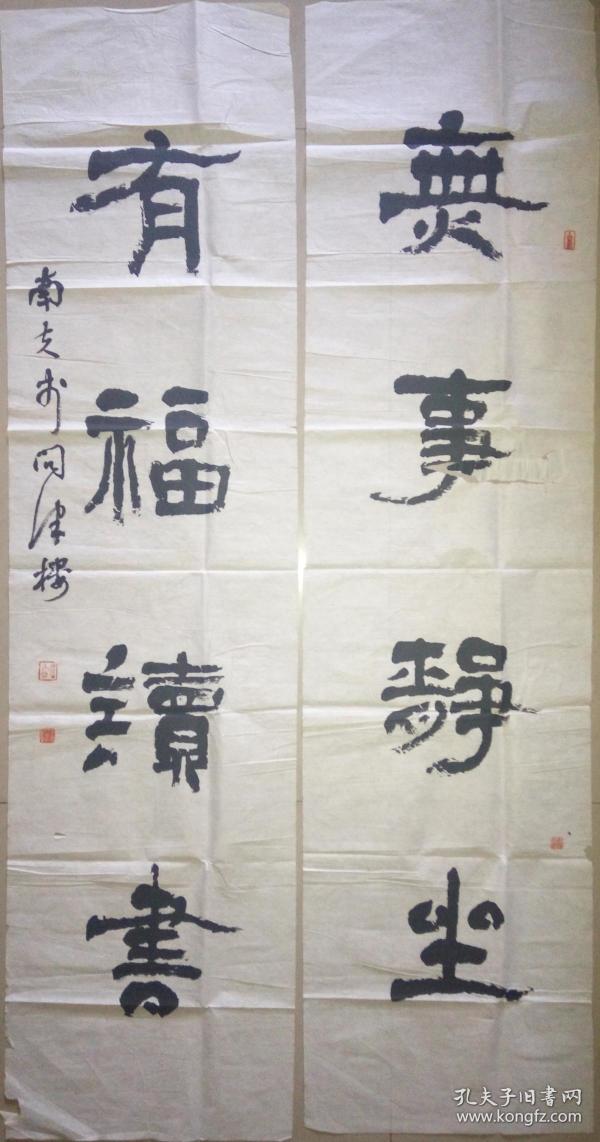 無事靜坐
有福讀書
南支於問津樓
孔夫子旧書网
www.kongfz.com